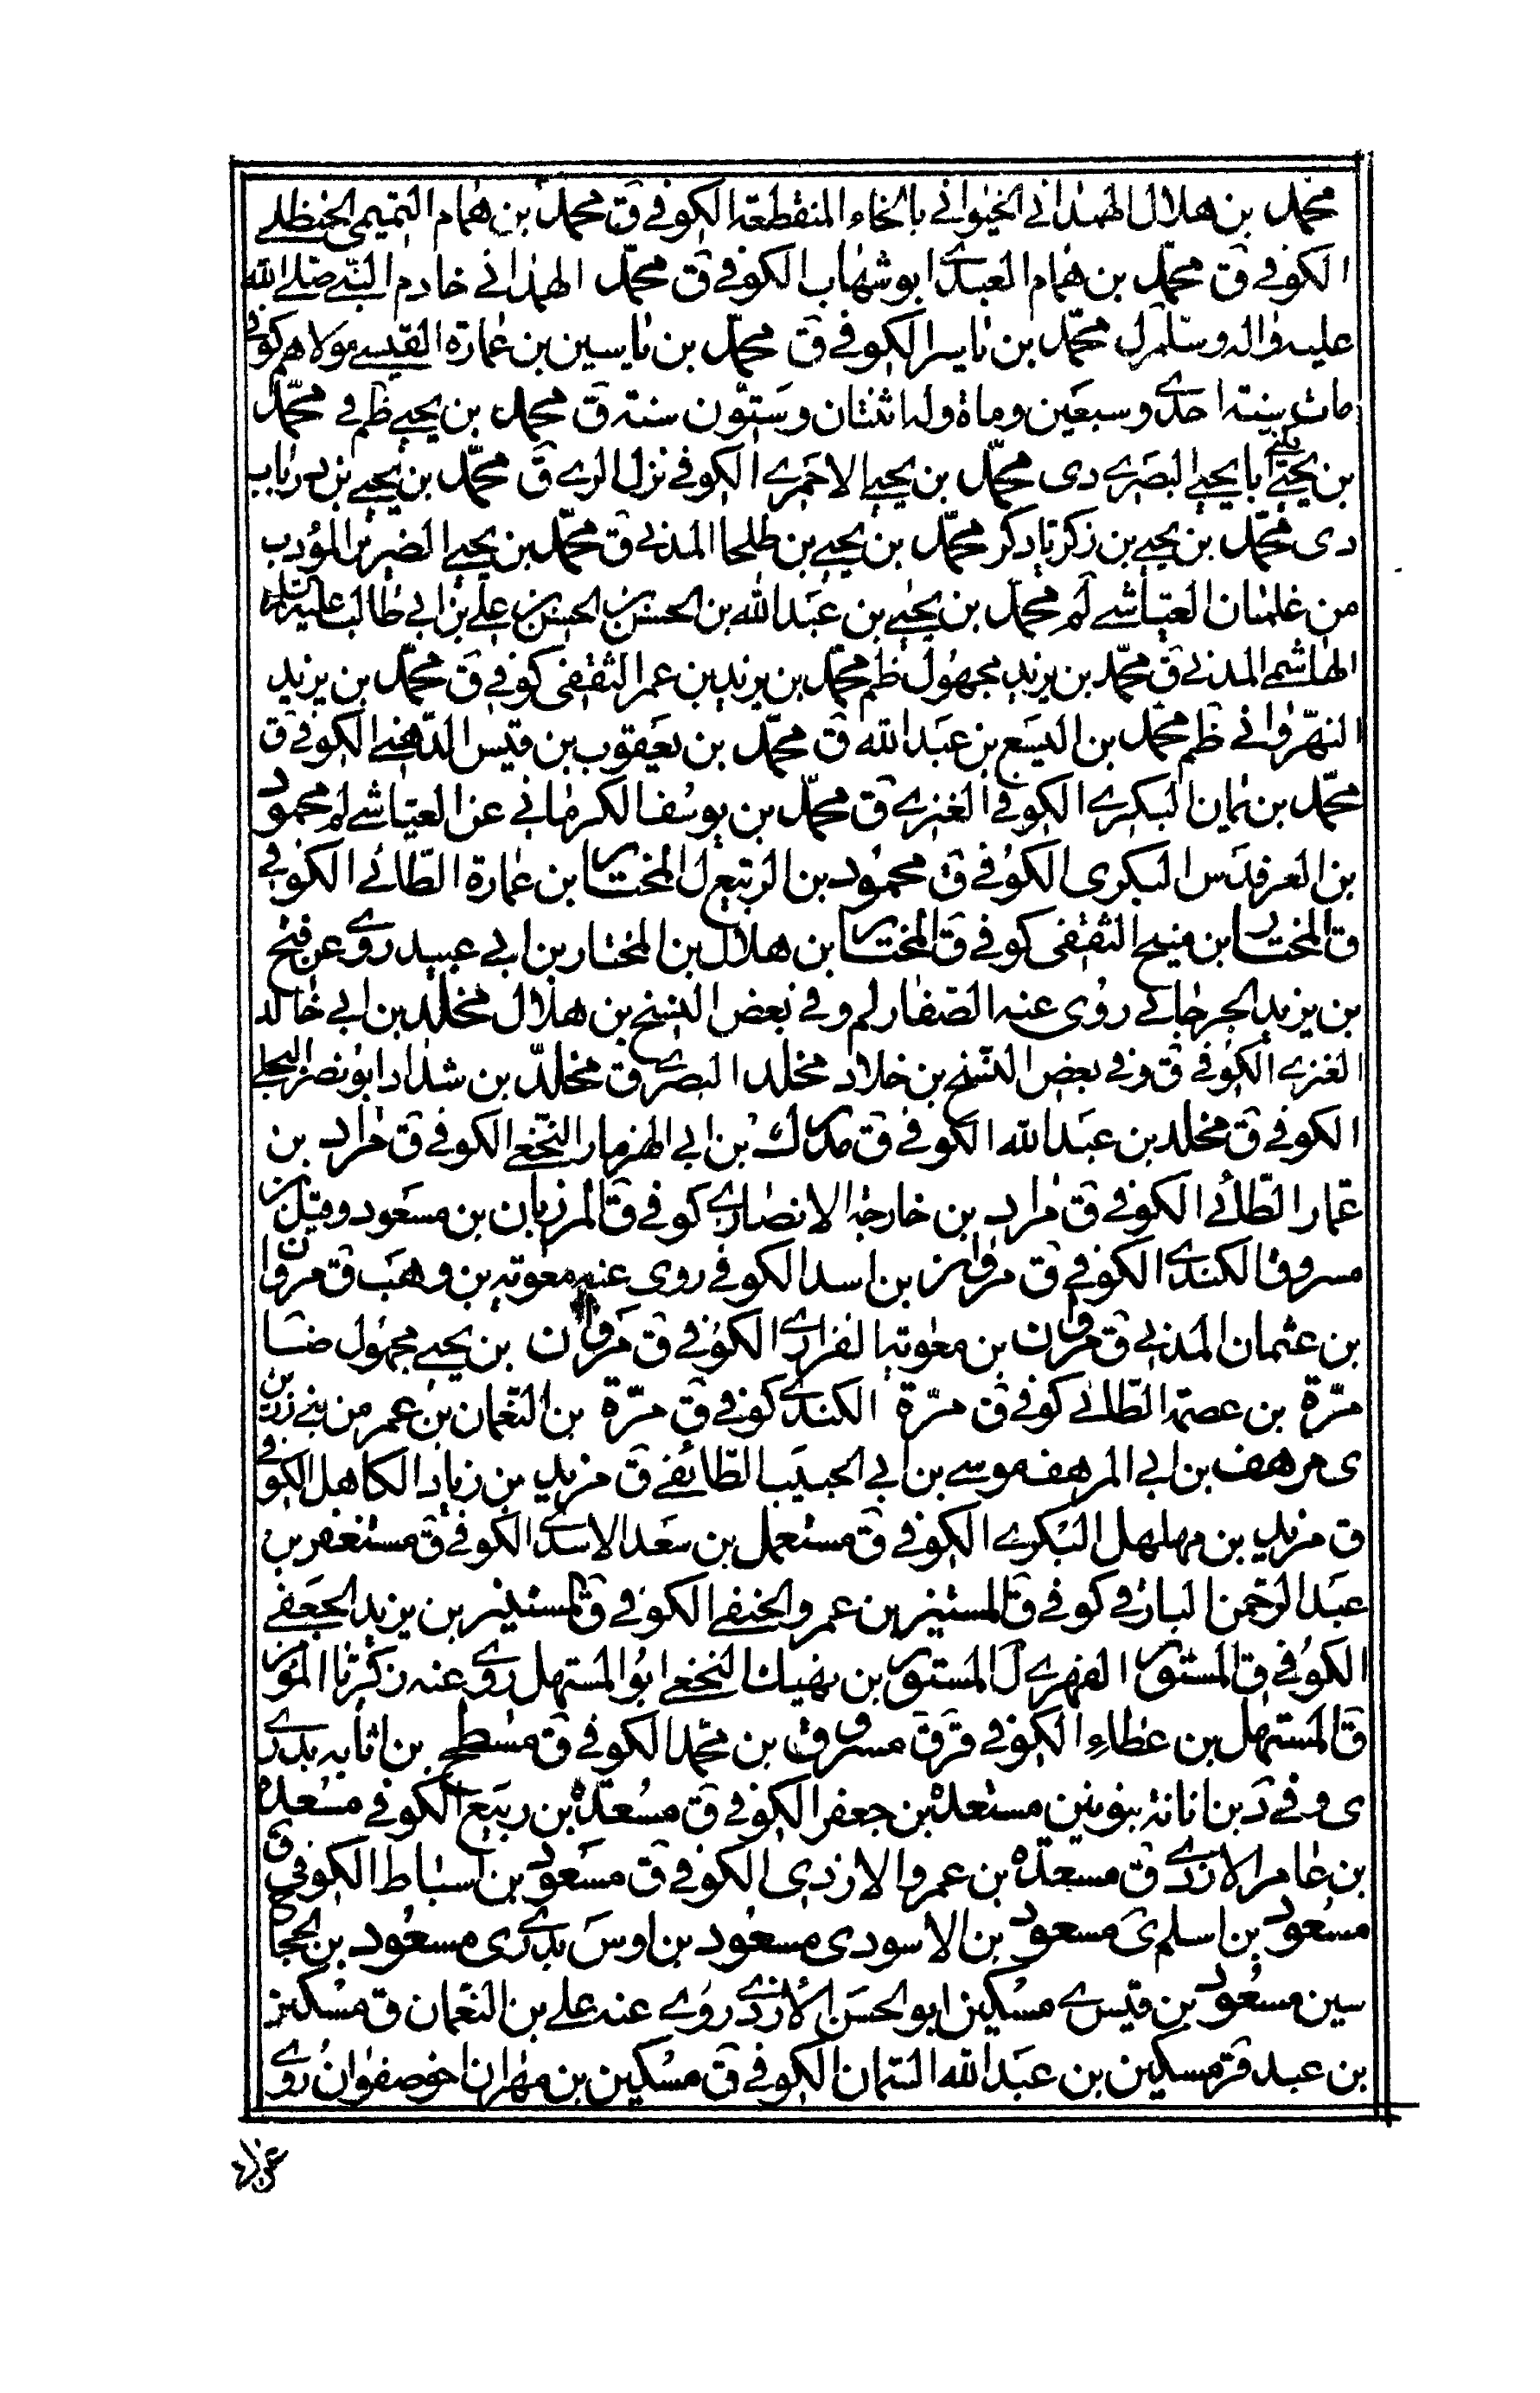 محمد بن هلال الهمداني الخيواني بالخاء المنقطعة الكوفي ق محمد بن همام التميمي الحنظلي
الكوفي ق محمد بن همام العبدي ابو شهاب الكوفي ق محمد الهمداني خادم النبي صلى الله
عليه واله وسلم ل محمد بن ياسر الكوفي ق محمد بن ياسين بن عمارة القيسي مولاهم كوفي
مات سنة احدى وسبعين وماة وله اثنتان وستون سنة ق محمد بن يحيى ظم في محمد
بن يحيى يكنى ابا يحيى البصري دى محمد بن يحيى الاحمري الكوفي نزل الري ق محمد بن يحيى بن درياب
دى محمد بن يحيى بن زكريا دكر محمد بن يحيى بن طلحا المدني ق محمد بن يحيى الضرير المؤدب
من غلمان العياشي لم محمد بن يحيى بن عبد الله بن الحسن بن الحسن بن علي بن ابي طالب عليه السلام
الهاشمي المدني ق محمد بن يزيد مجهول ظم محمد بن يزيد بن عمر الثقفي كوفي ق محمد بن يزيد
النهرواني ظم محمد بن اليسع بن عبد الله ق محمد بن يعقوب بن قيس الدهني الكوفي ق
محمد بن يمان البكري الكوفي الغنري ق محمد بن يوسف الكرماني عن العياشي لم محمود
بن العرفدس البكري الكوفي ق محمود بن الربيع ل المختار بن عمارة الطائي الكوفي
ق المختار بن منيح الثقفي كوفي ق المختار بن هلال بن المختار بن ابي عبيد روى عن فتح
بن يزيد الجرجاني روى عنه الصفار لم وفي بعض النسخ بن هلال مخلد بن ابي خالد
الغنري الكوفي ق وفي بعض النسخ بن خلاد مخلد البصري ق مخلد بن شداد ابو نصر البجلي
الكوفي ق مخلد بن عبد الله الكوفي ق مدرك بن ابي الهزهار النخعي الكوفي ق مراد بن
عمار الطائي الكوفي ق مراد بن خارجة الانصاري كوفي ق المرزبان بن مسعود وقيل بن
مسروق الكندي الكوفي ق مروان بن اسد الكوفي روى عنه معوية بن وهب ق مروان
بن عثمان المدني ق مروان بن معوية الفزاري الكوفي ق مروان بن يحيى مجهول ضا
مرة بن عصمة الطائي كوفي ق مرة الكندي كوفي ق مرة بن النعمان بن عمر من بني زريق
ى مرهف بن ابي المرهف موسى بن ابي الحبيب الطائفي ق مزيد بن زياد الكاهل الكوفي
ق مزيد بن مهلهل البكري الكوفي ق مستعمل بن سعد الاسدي الكوفي ق مستغفر بن
عبد الرحمن البارقي كوفي ق المستنير بن عمرو الحنفي الكوفي ق المستنير بن يزيد الجعفي
الكوفي ق المستورد الفهري ل المستورد بن نهيك النخعي ابو المستهل روى عنه زكريا المؤمن
ق المستهل بن عطاء الكوفي قرق مسروق بن محمد الكوفي ق مسطح بن اثاثه بدري
ى وفي د بن نانة بنونين مسعدة بن جعفر الكوفي ق مسعدة بن ربيع الكوفي مسعدة
بن عامر الازدي ق مسعدة بن عمرو الازدي الكوفي ق مسعود بن اسباط الكوفي ق
مسعود بن اسلم ى مسعود بن الاسود ى مسعود بن اوس بدري ى مسعود بن الحجاج
سين مسعود بن قيس ى مسكين ابو الحسن الازدي روى عنه علي بن النعمان ق مسكين
بن عبد قر مسكين بن عبد الله السمان الكوفي ق مسكين بن مهران اخو صفوان روى